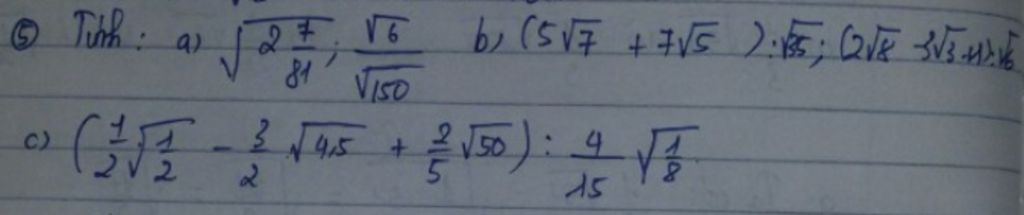 ⑤ Tính : a) √(2 7/81) ; √6/√150 b) (5√7 + 7√5) : √35 ; (2√8 - 3√3 + 1) : √6
c) (1/2 √(1/2) - 3/2 √4,5 + 2/5 √50) : 4/15 √(1/8)